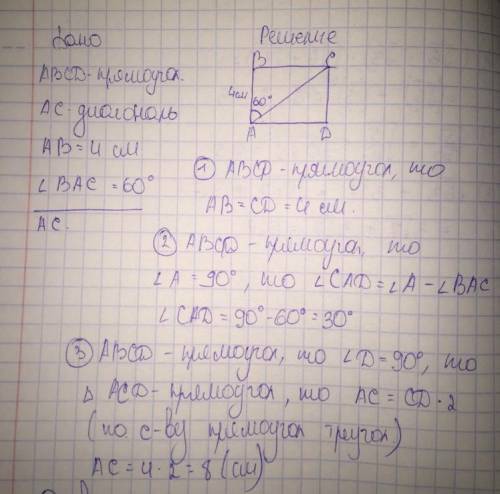 Дано
Решение
ABCD-прямоугол.
AC-диагональ
AB=4 см
∠BAC=60°
AC.
B C
4см 60°
A D
① ABCD-прямоугол, то
AB=CD=4 см.
② ABCD-прямоугол, то
∠A=90°, то ∠CAD=∠A-∠BAC
∠CAD=90°-60°=30°
③ ABCD-прямоугол, то ∠D=90°, то
Δ ACD-прямоугол, то AC=CD·2
(по с-ву прямоугол треугол)
AC=4·2=8 (см)